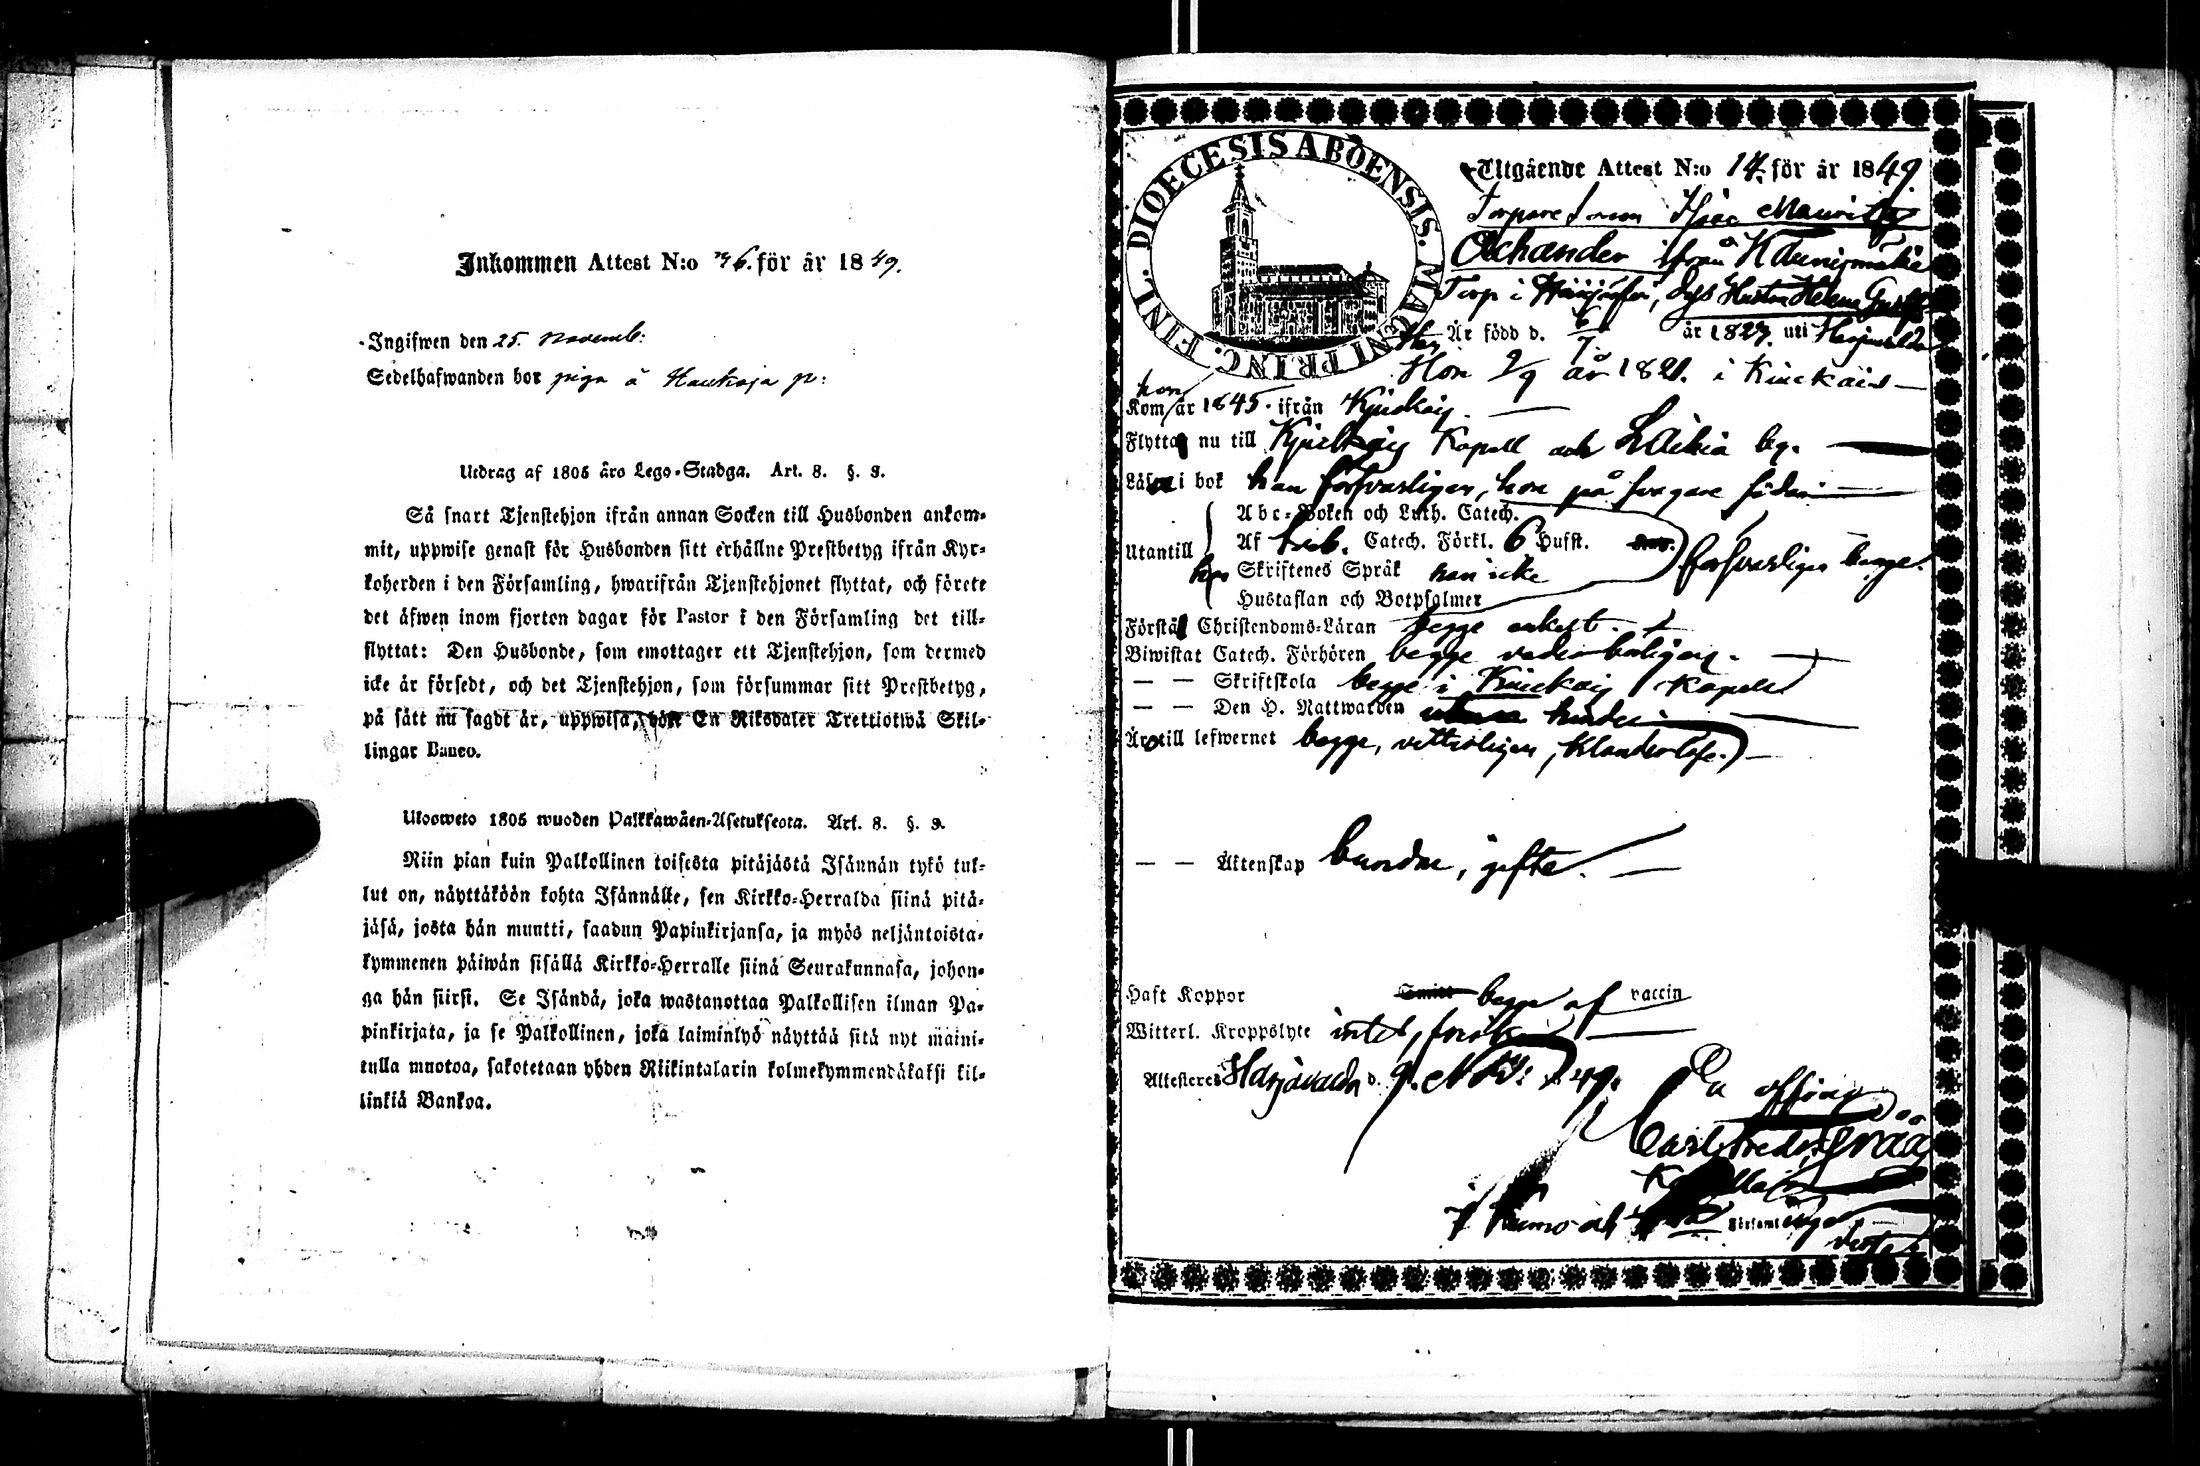 Inkommen Attest N:o 46. för år 1849.
Ingifwen den 25. Novemb:
Sedelhafwanden bor piga å Haukoja p:
Utdrag af 1805 års Lego-Stadga. Art. 8. §. 3.
Så snart Tjenstehjon ifrån annan Socken till Husbonden ankom-
mit, uppwise genast för Husbonden sitt erhållne Prestbetyg ifrån Kyr-
koherden i den Församling, hwarifrån Tjenstehjonet flyttat, och förete
det äfwen inom fjorton dagar för Pastor i den Församling det till-
flyttat: Den Husbonde, som emottager ett Tjenstehjon, som dermed
icke är försedt, och det Tjenstehjon, som försummar sitt Prestbetyg,
på sätt nu sagdt är, uppwisa, böte En Riksdaler Trettiotwå Skil-
lingar Banco.
Ulosweto 1805 wuoden Palkkawäen-Asetuksesta. Art. 8. §. 3.
Niin pian kuin Palkollinen toisesta pitäjästä Isännän tykö tul-
lut on, näyttäköön kohta Isännälle, sen Kirkko-Herralda siinä pitä-
jäsä, josta hän muutti, saadun Papinkirjansa, ja myös neljäntoista-
kymmenen päiwän sisällä Kirkko-Herralle siinä Seurakunnasa, johon-
ga hän siirsi. Se Isändä, joka wastanottaa Palkollisen ilman Pa-
pinkirjata, ja se Palkollinen, joka laiminlyö näyttää sitä nyt maini-
tulla muotoa, sakotetaan yhden Riikintalarin kolmekymmendäkaksi kil-
linkiä Bankoa.
DIOECESIS ABOËNSIS. MAGNI PRINC. FINL.
Utgående Attest N:o 14. för år 1849.
Torpare sonen Isac Mauritz
Achander ifrån Kaunismäki
Torp i Härjulfsi, dess Hustru Helena Gustafs
Han Är född d. 6/7 år 1827. uti Harjavalda
Hon 2/9 år 1821. i Kiuckais
hon Kom år 1845. ifrån Kjuckais.
Flytta nu till Kjuckais Kapell och Laihia by.
Läsa i bok han försvarligen, hon på svagare sidan
Utantill Abc-Boken och Luth. Catech.
Af Catech. Förkl. 6 Hufst. försvarligen begge.
Skriftenes Språk kan icke
Hustaflan och Botpsalmer
Förstå Christendoms-Läran begge enkelt.
Biwistat Catech. Förhören begge vederbörligen.
— — Skriftskola begge i Kiuckais Kapell
— — Den H. Nattwarden utan hinder.
Äro till lefwernet begge, vitterligen, klanderlöse.
— — Äktenskap bundne, gifte.
Haft Koppor begge af vaccin
Witterl. Kroppslyte intet, försökt
Attesteras Harjavalda d. 9. Nov: 1849.
Ex officio
Carl Fredr
i Kumo och
Församl